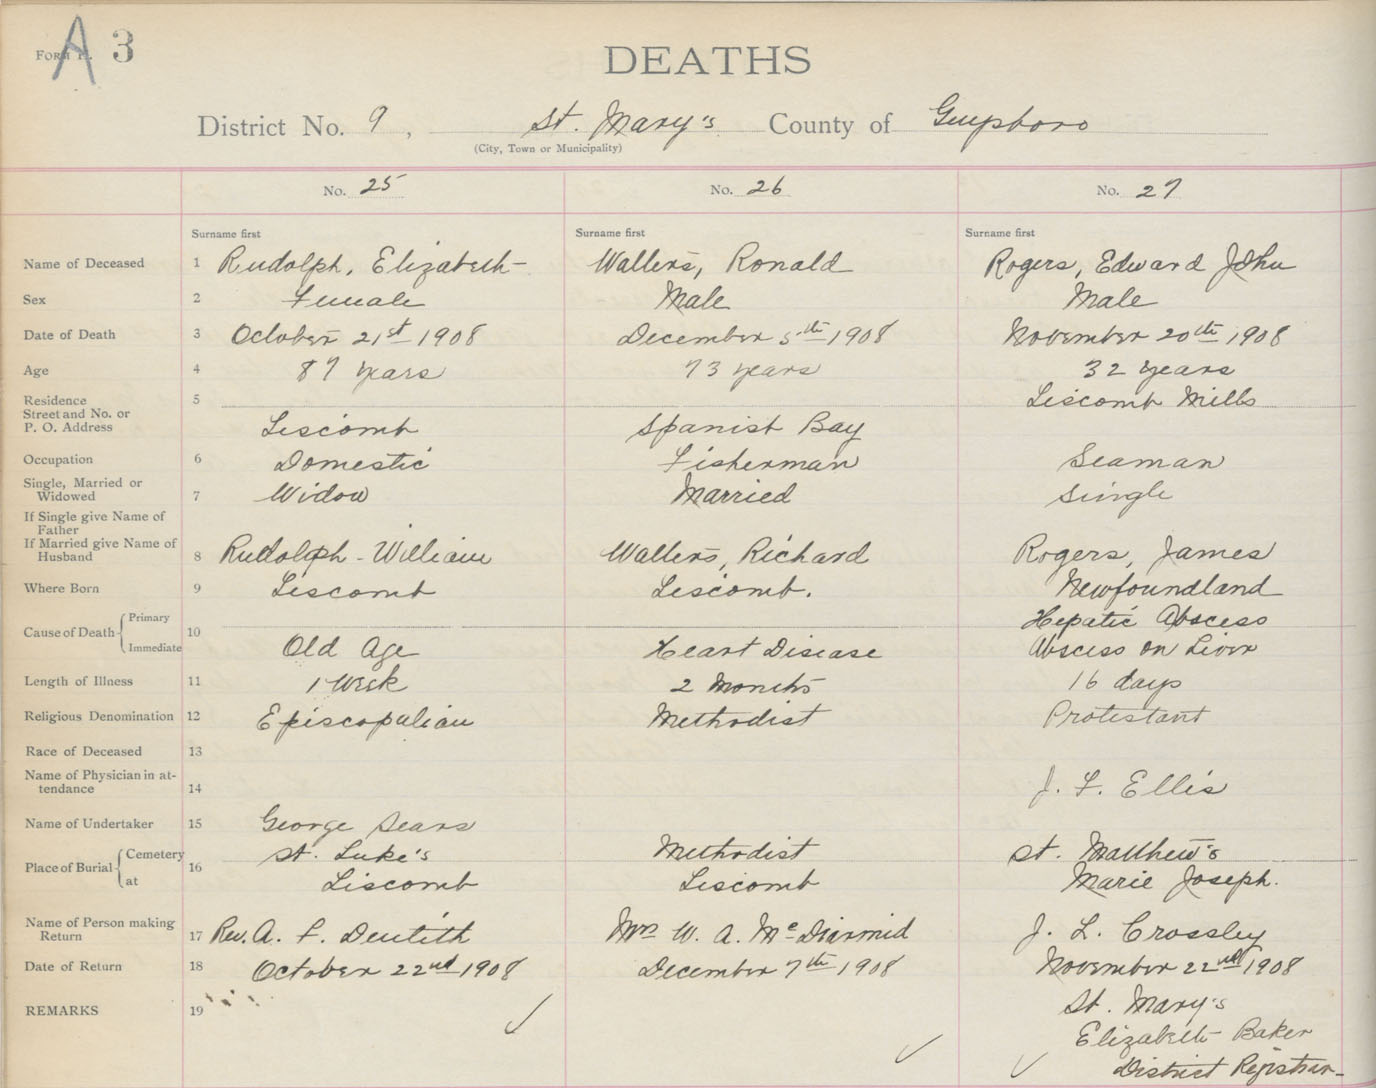 FORM A. 3
DEATHS
District No. 9, St. Mary's County of Guysboro
(City, Town or Municipality)
No. 25 No. 26 No. 27
Surname first Surname first Surname first
Name of Deceased 1 Rudolph, Elizabeth Walters, Ronald Rogers, Edward John
Sex 2 Female Male Male
Date of Death 3 October 21st 1908 December 5th 1908 November 20th 1908
Age 4 87 years 73 years 32 years
Residence 5 Liscomb Mills
Street and No. or
P. O. Address Liscomb Spanish Bay
Occupation 6 Domestic Fisherman Seaman
Single, Married or
Widowed 7 Widow Married Single
If Single give Name of
Father
If Married give Name of
Husband 8 Rudolph - William Walters, Richard Rogers, James
Where Born 9 Liscomb Liscomb. Newfoundland
Cause of Death Primary 10 Hepatic Abscess
Immediate Old Age Heart Disease Abscess on Liver
Length of Illness 11 1 Week 2 Months 16 days
Religious Denomination 12 Episcopalian Methodist Protestant
Race of Deceased 13
Name of Physician in at-
tendance 14 J. F. Ellis
Name of Undertaker 15 George Sears
Place of Burial Cemetery 16 St. Luke's Methodist St. Matthew's
at Liscomb Liscomb Marie Joseph.
Name of Person making
Return 17 Rev. A. F. Dentith Mrs W. A. McDiarmid J. L. Crossley
Date of Return 18 October 22nd 1908 December 7th 1908 November 22nd 1908
REMARKS 19 St. Mary's
Elizabeth Baker
District Registrar